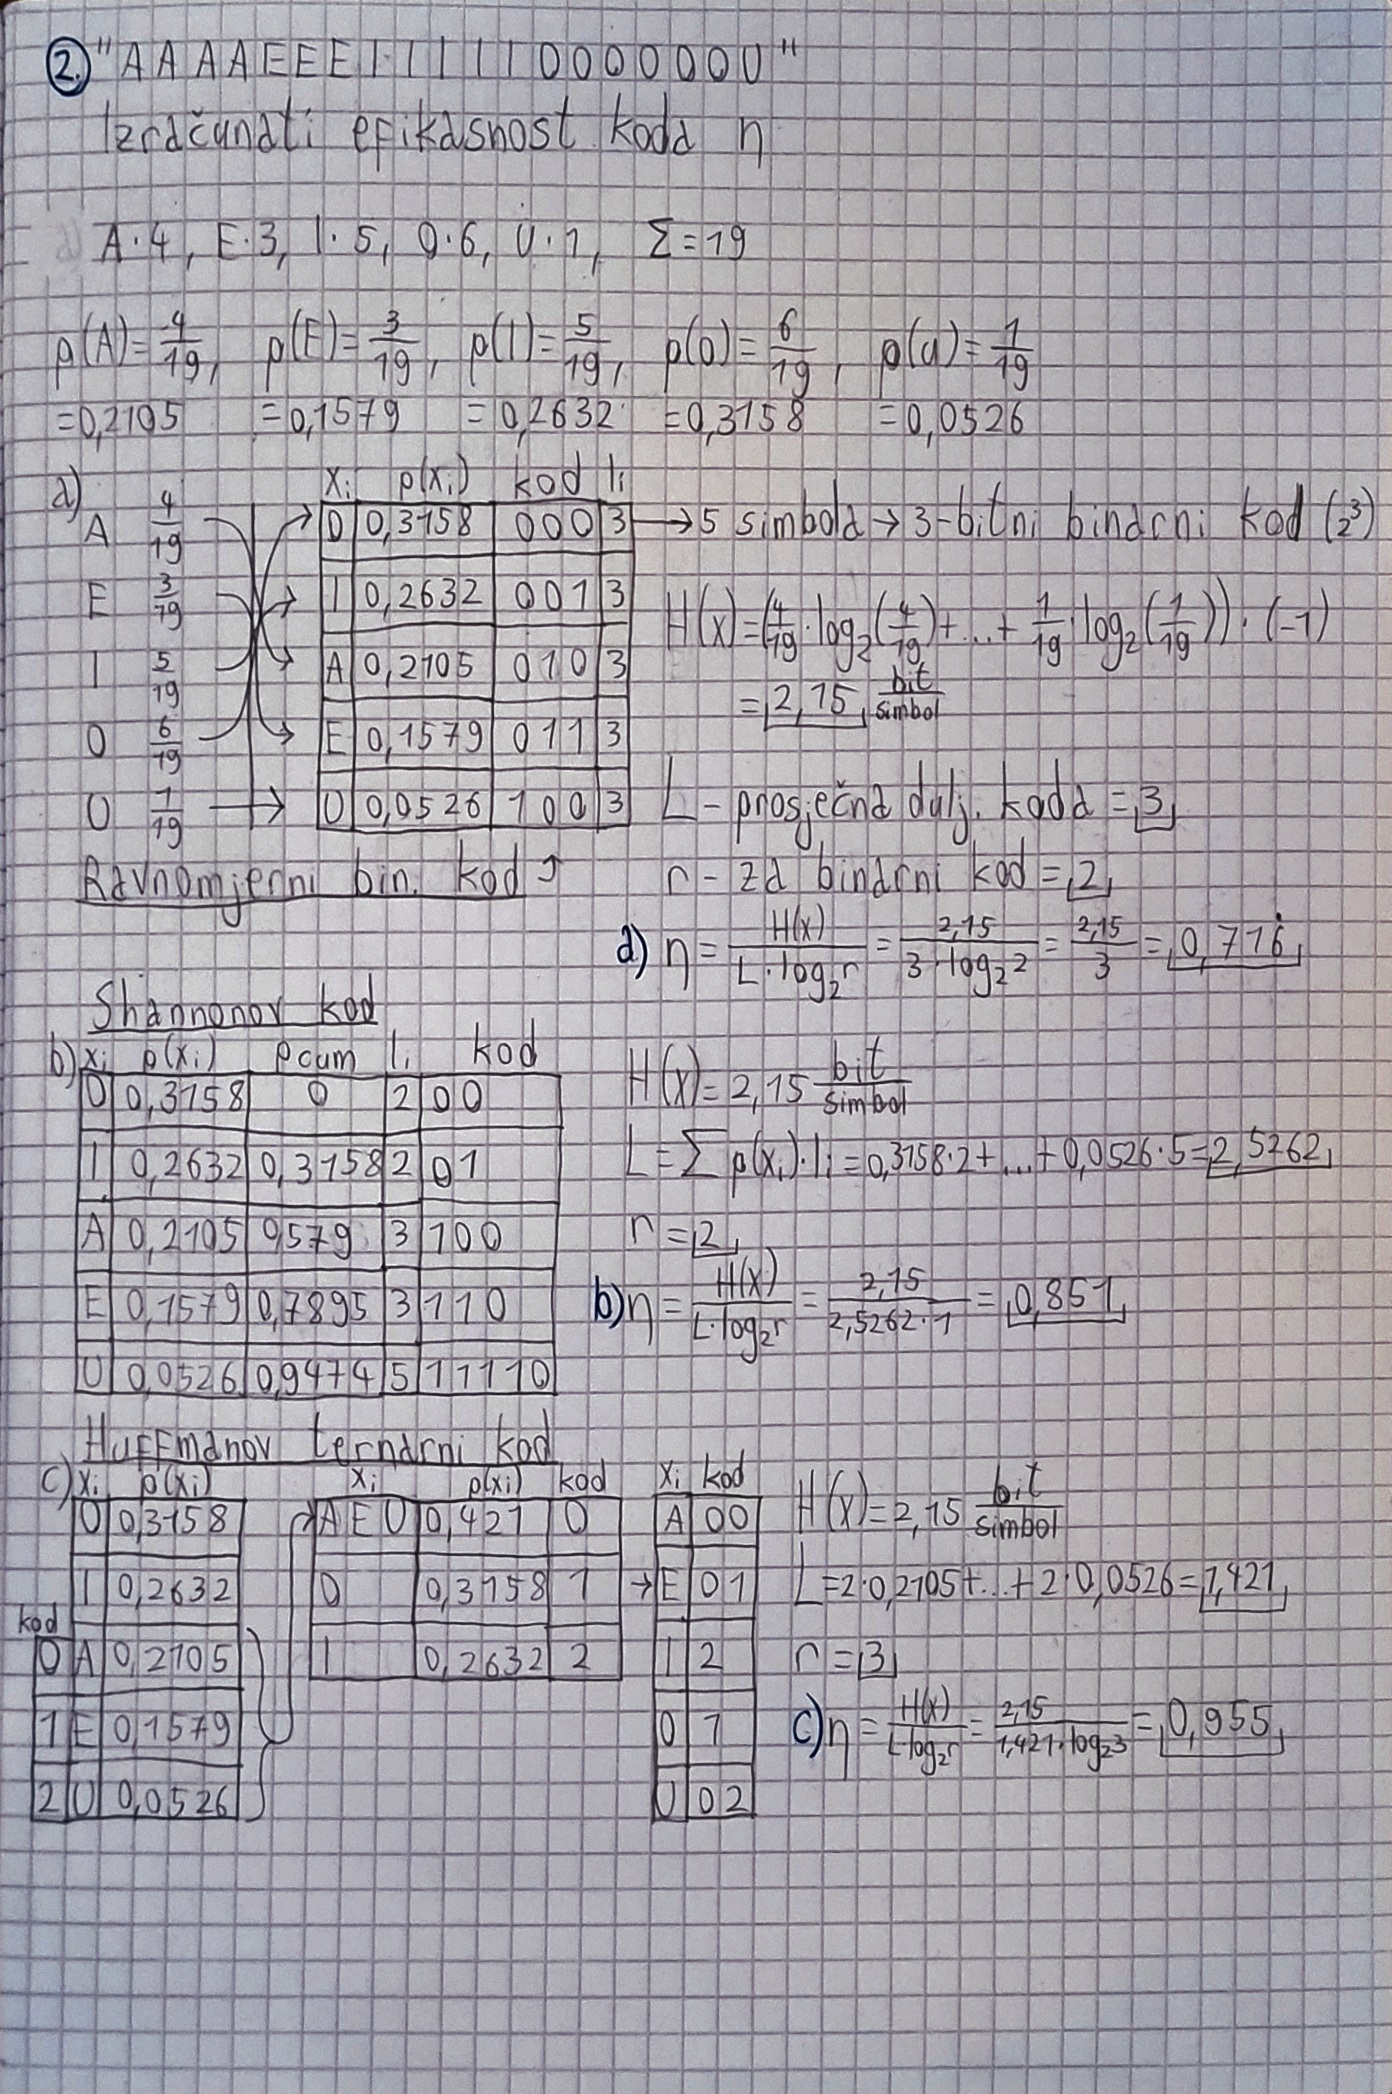 2. "AAAAEEEIIIIIOOOOOOU"
Izračunati efikasnost koda η
A·4, E·3, I·5, O·6, U·1, Σ=19
p(A)=4/19, p(E)=3/19, p(I)=5/19, p(O)=6/19, p(U)=1/19
=0,2105 =0,1579 =0,2632 =0,3158 =0,0526
a)
A 4/19
E 3/19
I 5/19
O 6/19
U 1/19
xᵢ p(xᵢ) kod lᵢ
O 0,3158 000 3 → 5 simbola → 3-bitni binarni kod (2³)
I 0,2632 001 3
A 0,2105 010 3
E 0,1579 011 3
U 0,0526 100 3
Ravnomjerni bin. kod ↑
H(x)=(4/19·log₂(4/19)+...+1/19·log₂(1/19))·(-1)
=2,15 bit/simbol
L - prosječna dulj. koda = 3
r - za binarni kod = 2
a) η = H(x)/(L·log₂r) = 2,15/(3·log₂2) = 2,15/3 = 0,716̇
Shannonov kod
b) xᵢ p(xᵢ) Pcum lᵢ kod
O 0,3158 0 2 00
I 0,2632 0,3158 2 01
A 0,2105 0,579 3 100
E 0,1579 0,7895 3 110
U 0,0526 0,9474 5 11110
H(x)=2,15 bit/simbol
L=Σp(xᵢ)·lᵢ=0,3158·2+...+0,0526·5=2,5262
r=2
b) η = H(x)/(L·log₂r) = 2,15/(2,5262·1) = 0,851
Huffmanov ternarni kod
c) xᵢ p(xᵢ)
O 0,3158
I 0,2632
kod
0 A 0,2105
1 E 0,1579
2 U 0,0526
xᵢ p(xᵢ) kod
AEU 0,421 0
O 0,3158 1
I 0,2632 2
xᵢ kod
A 00
E 01
I 2
O 1
U 02
H(x)=2,15 bit/simbol
L=2·0,2105+...+2·0,0526=1,421
r=3
c) η = H(x)/(L·log₂r) = 2,15/(1,421·log₂3) = 0,955